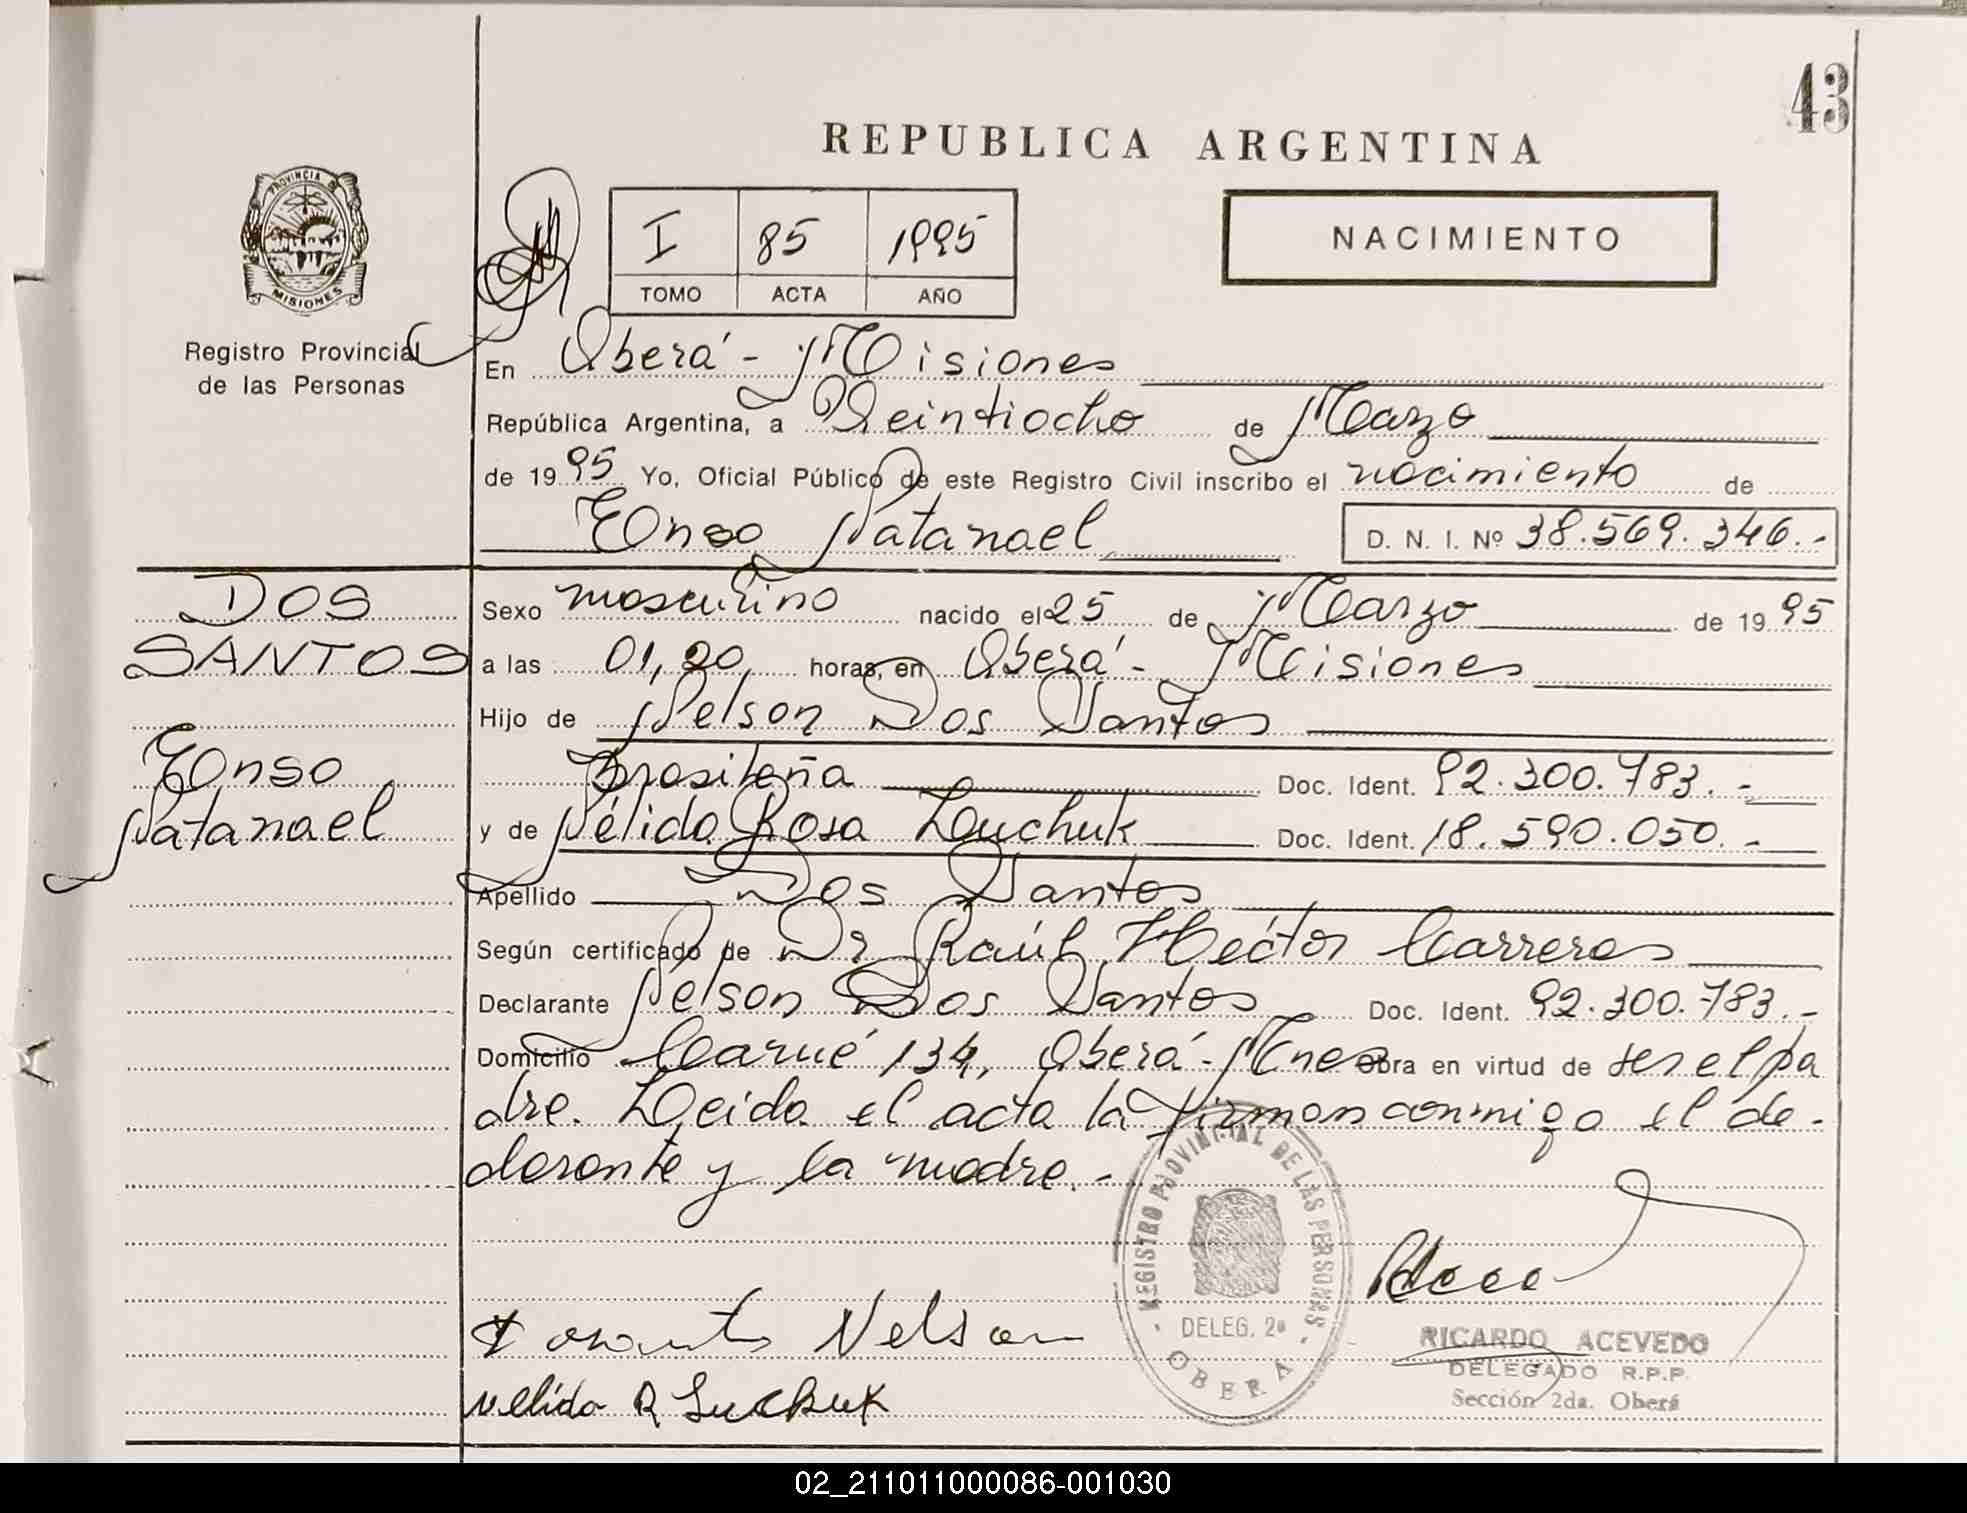 43
REPUBLICA ARGENTINA
PROVINCIA DE
MISIONES
Registro Provincial
de las Personas
I 85 1995
TOMO ACTA AÑO
NACIMIENTO
En Oberá - Misiones
República Argentina, a Veintiocho de Marzo
de 1995 Yo, Oficial Público de este Registro Civil inscribo el nacimiento de
Enso Natanael D. N. I. Nº 38.569.346.-
DOS
SANTOS
Enso
Natanael
Sexo masculino nacido el 25 de Marzo de 1995
a las 01,20 horas, en Oberá - Misiones
Hijo de Nelson Dos Santos
Brasileña Doc. Ident. 92.300.783.-
y de Nélida Rosa Luchuk Doc. Ident. 18.590.050.-
Apellido Dos Santos
Según certificado de Dr Raúl Héctor Carreras
Declarante Nelson Dos Santos Doc. Ident. 92.300.783.-
Domicilio Carué 134, Oberá - Mnes Obra en virtud de ser el pa
dre. Leida el acta la firman conmigo el de-
clarante y la madre.-
Nelson
Nelida R Luchuk
REGISTRO PROVINCIAL DE LAS PERSONAS
DELEG. 2ª
OBERA
RICARDO ACEVEDO
DELEGADO R.P.P.
Sección 2da. Oberá
02_211011000086-001030